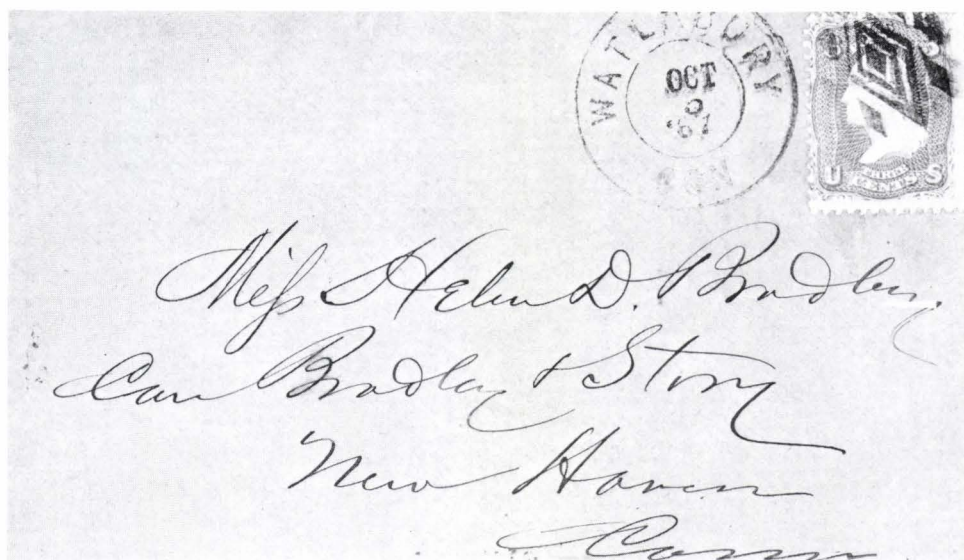 WATERBURY
OCT
'67
CON
U S
THREE
CENTS
Miss Helen D. Bradley.
Care Bradley & Story
New Haven
Conn